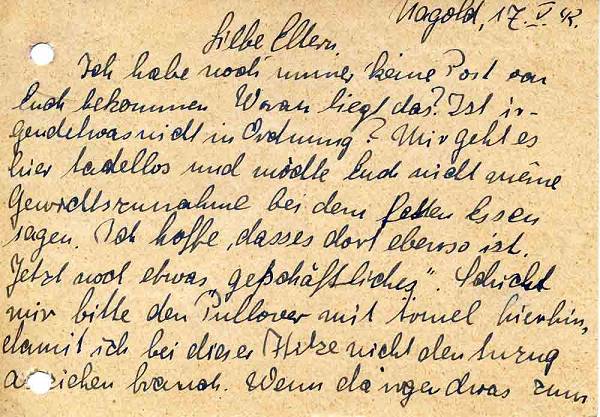 Nagold, 17. V. 42.
Liebe Eltern.
Ich habe noch immer keine Post von
Euch bekommen. Woran liegt das? Ist ir-
gendetwas nicht in Ordnung? Mir geht es
hier tadellos und möchte Euch nicht meine
Gewichtszunahme bei dem guten Essen
sagen. Ich hoffe, dass es dort ebenso ist.
Jetzt noch etwas „geschäftliches“. Schickt
mir bitte den Pullover mit Ärmel hierhin,
damit ich bei dieser Hitze nicht den Anzug
anziehen brauch. Wenn da irgendwas zum